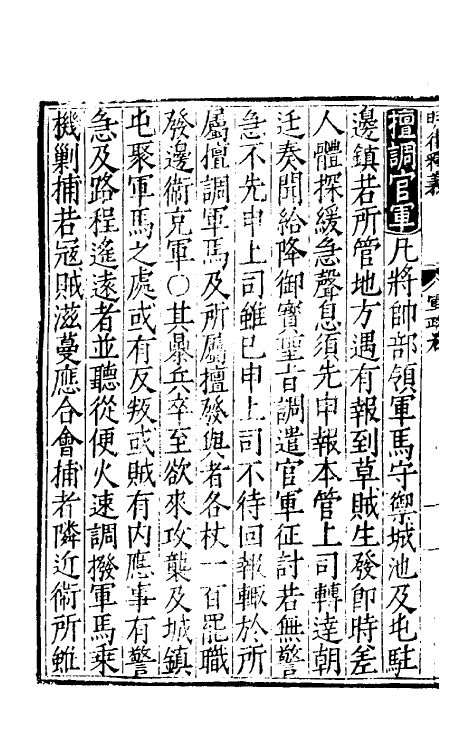 擅調官軍凡將帥部領軍馬守禦城池及屯駐
邊鎮若所管地方遇有報到草賊生發卽時差
人體探緩急聲息須先申報本管上司轉達朝
廷奏聞給降御寶聖旨調遣官軍征討若無警
急不先申上司雖已申上司不待回報輒於所
屬擅調軍馬及所屬擅發與者各杖一百罷職
發邊衛充軍○其暴兵卒至欲來攻襲及城鎮
屯聚軍馬之處或有反叛或賊有內應事有警
急及路程遙遠者並聽從便火速調撥軍馬乘
機剿捕若寇賊滋蔓應合會捕者隣近衛所雖